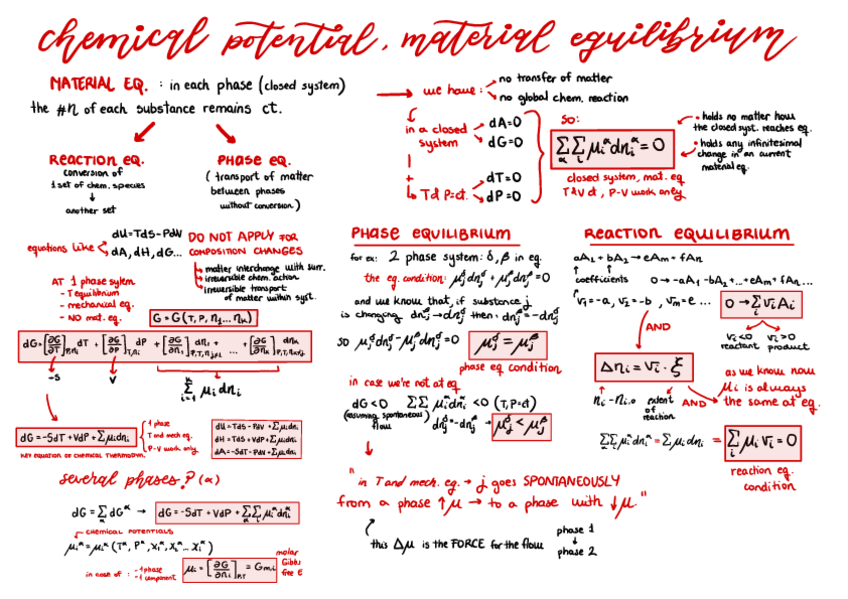 chemical potential, material equilibrium
MATERIAL EQ. : in each phase (closed system)
the #n of each substance remains ct.
REACTION EQ.
conversion of
1 set of chem. species
↓
another set
PHASE EQ.
(transport of matter
between phases
without conversion)
→ we have:
no transfer of matter
no global chem. reaction
in a closed
system
dA=0
dG=0
+
T & P=ct.
dT=0
dP=0
so:
ΣαΣi μiᵅdniᵅ = 0
closed system, mat. eq
T & V ct, P-V work only
• holds no matter how
the closed syst. reaches eq.
• holds any infinitesimal
change in an current
material eq.
equations like
dU=TdS-PdV
dA, dH, dG...
DO NOT APPLY FOR
COMPOSITION CHANGES
matter interchange with surr.
irreversible chem. action
irreversible transport
of matter within syst.
AT 1 phase sytem
- T equilibrium
- mechanical eq.
- NO mat. eq.
G = G (T, P, n₁... nₖ)
dG=[∂G/∂T]P,ni dT + [∂G/∂P]T,ni dP + [∂G/∂n₁]P,T,nj≠1 dn₁ + ... + [∂G/∂nₖ]P,T,nj≠k dnₖ
-S
V
Σ μi dni
i=1
dG=-SdT+VdP+Σμidni
KEY EQUATION OF CHEMICAL THERMODYN.
1 phase
T and mech eq.
P-V work only
dU=TdS-PdV+Σμidni
dH=TdS+VdP+Σμidni
dA=-SdT-PdV+Σμidni
several phases? (α)
dG = Σα dGᵅ → dG=-SdT+VdP+ΣαΣi μiᵅdniᵅ
CHEMICAL POTENTIALS
μiᵅ=μiᵅ (Tᵅ, Pᵅ, x₁ᵅ, x₂ᵅ... xiᵅ)
in case of :
- 1 phase
- 1 component
μi=[∂G/∂ni]P,T = Gm,i
molar
Gibbs
free E
PHASE EQUILIBRIUM
for ex: 2 phase system: δ, β in eq.
the eq. condition: μjᵟdnjᵟ + μjᵝdnjᵝ = 0
and we know that, if substance j
is changing dnjᵟ → dnjᵝ then: dnjᵝ = -dnjᵟ
so μjᵟdnjᵟ - μjᵝdnjᵟ = 0
μjᵟ = μjᵝ
phase eq condition
in case we're not at eq
dG<0 ΣΣ μiᵅdniᵅ <0 (T,P=ct)
(assuming spontaneous)
flow
dnjᵟ = -dnjᵝ → μjᵟ < μjᵝ
↓
" in T and mech. eq. → j goes SPONTANEOUSLY
from a phase ↑μ → to a phase with ↓μ. "
this Δμ is the FORCE for the flow
phase 1
↓
phase 2
REACTION EQUILIBRIUM
aA₁ + bA₂ → eAm + fAn
coefficients
0 → -aA₁ - bA₂ +... +eAm + fAn...
v₁=-a, v₂=-b , vm=e ...
0 → Σi vi Ai
vi<0
reactant
vi>0
product
AND
Δni = vi · ξ
ni - ni,o
extent
of
reaction
AND
as we know now
μi is always
the same at eq.
ΣΣ μiᵅdniᵅ = Σ μi dni = Σi μi vi = 0
reaction eq.
condition